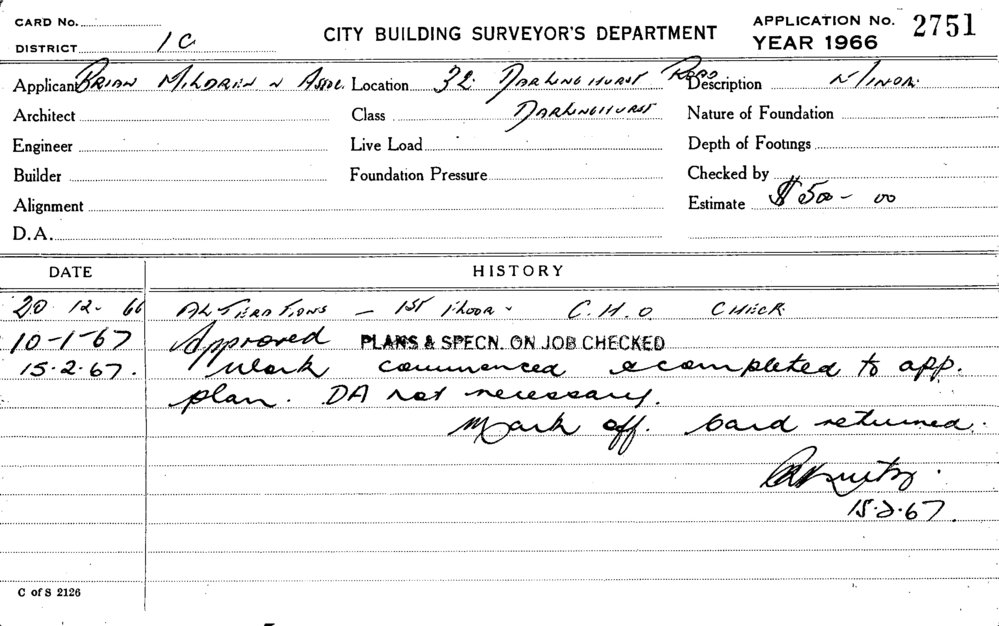 CARD No.
DISTRICT 1C
CITY BUILDING SURVEYOR'S DEPARTMENT
APPLICATION No. 2751
YEAR 1966
Applicant BRIAN MILDREN N ASSOC. Location 32 DARLINGHURST ROAD Description MINOR
Architect Class DARLINGHURST Nature of Foundation
Engineer Live Load Depth of Footings
Builder Foundation Pressure Checked by
Alignment Estimate $500-00
D.A.
DATE HISTORY
20.12.66 ALTERATIONS - 1ST FLOOR. C.H.O. CHECK
10-1-67 Approved PLANS & SPECN. ON JOB CHECKED
15.2.67. Work commenced & completed to app.
plan. DA not necessary.
Mark off. Card returned.
15.2.67.
C of S 2126